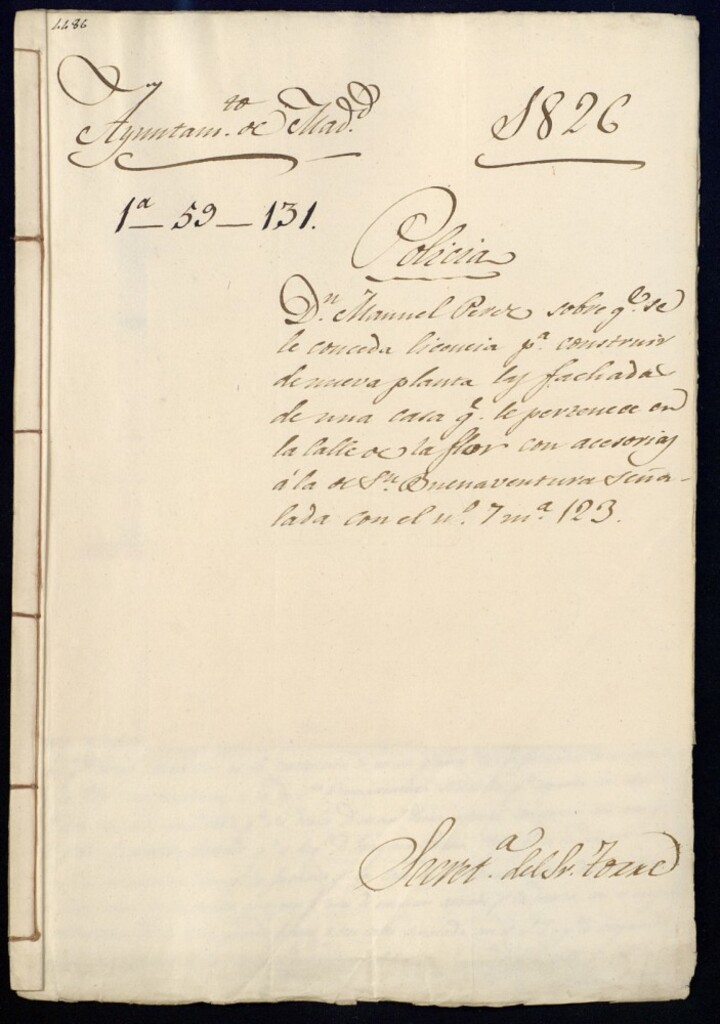 4486
Ayuntam.to de Mad.d
1826
1a — 59 — 131.
Policia
Dn. Manuel Perez sobre q.e se
le conceda licencia pa. construir
de nueva planta las fachadas
de una casa q.e le pertenece en
la Calle de la flor con acesorias
á la de Sn. Buenaventura seña-
lada con el no. 7 ma. 123.
Secret.a del Sr. Torre